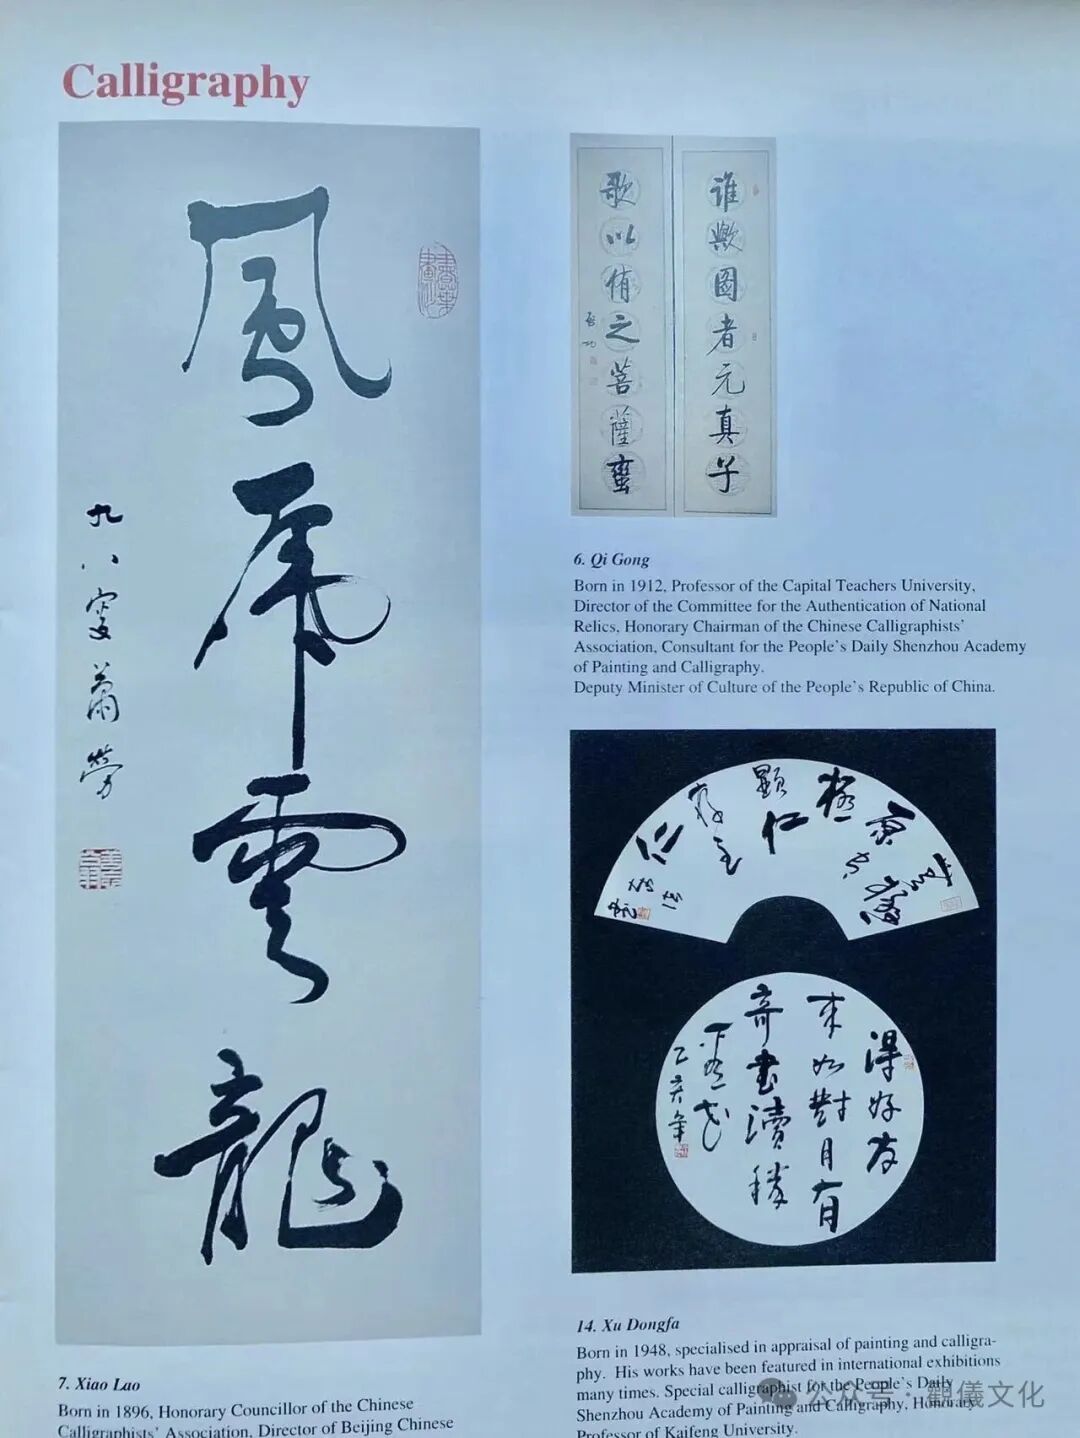 Calligraphy
風虎雲龍
九八叟蕭勞
誰歟圖者元真子
歌以侑之菩薩蠻
啟功
6. Qi Gong
Born in 1912, Professor of the Capital Teachers University,
Director of the Committee for the Authentication of National
Relics, Honorary Chairman of the Chinese Calligraphists'
Association, Consultant for the People's Daily Shenzhou Academy
of Painting and Calligraphy.
Deputy Minister of Culture of the People's Republic of China.
顯仁
得好友
来如對月有
奇書讀勝
乙亥年
14. Xu Dongfa
Born in 1948, specialised in appraisal of painting and calligra-
phy. His works have been featured in international exhibitions
many times. Special calligraphist for the People's Daily
Shenzhou Academy of Painting and Calligraphy, Honorary
Professor of Kaifeng University.
7. Xiao Lao
Born in 1896, Honorary Councillor of the Chinese
Calligraphists' Association, Director of Beijing Chinese
公众号·觀儀文化